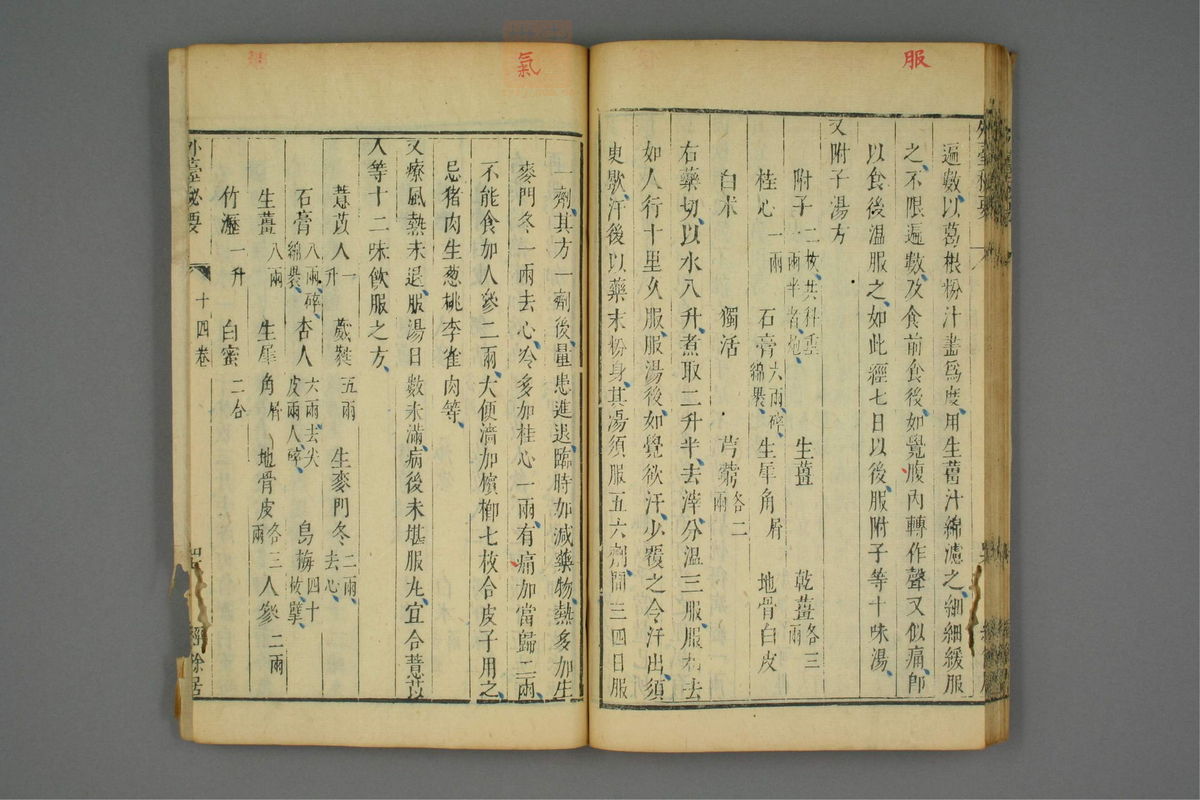 服
遍數以葛根粉汁盡為度用生薑汁綿濾之細細緩服
之不限遍數及食前食後如覺腹內轉作聲又似痛即
以食後溫服之如此經七日以後服附子等十味湯
又附子湯方
附子二枚共秤重一兩半者炮 生薑 乾薑各三兩
桂心一兩 石膏六兩碎綿裹 生犀角屑 地骨白皮
白朮 獨活 芎藭各二兩
右藥切以水八升煮取二升半去滓分溫三服服相去
如人行十里久服服湯後如覺欲汗少覆之令汗出須
臾歇汗後以藥末粉身其湯須服五六劑間三四日服
氣
一劑其方一劑後量患進退臨時加減藥物熱多加生
麥門冬一兩去心冷多加桂心一兩有痛加當歸二兩
不能食加人參二兩大便澁加檳榔七枚合皮子用之
忌猪肉生葱桃李雀肉等
又療風熱未退服湯日數未滿病後未堪服丸宜合薏苡
人等十二味飲服之方
薏苡人一升 葳蕤五兩 生麥門冬二兩去心
石膏八兩碎綿裹 杏人六兩去尖皮兩人碎 烏梅四十枚擘
生薑八兩 生犀角屑 地骨皮各三兩 人參二兩
竹瀝一升 白蜜二合
外臺秘要 十四卷 經餘居